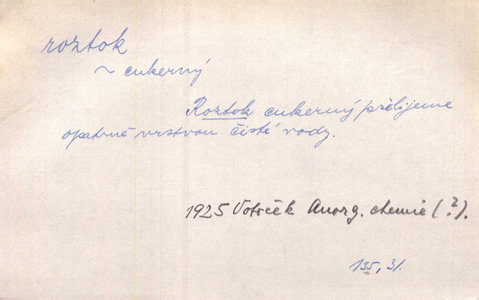 roztok
~ cukerný
Roztok cukerný přelijeme
opatrně vrstvou čisté vody.
1925 Votoček Anorg. chemie (?).
135, 31.